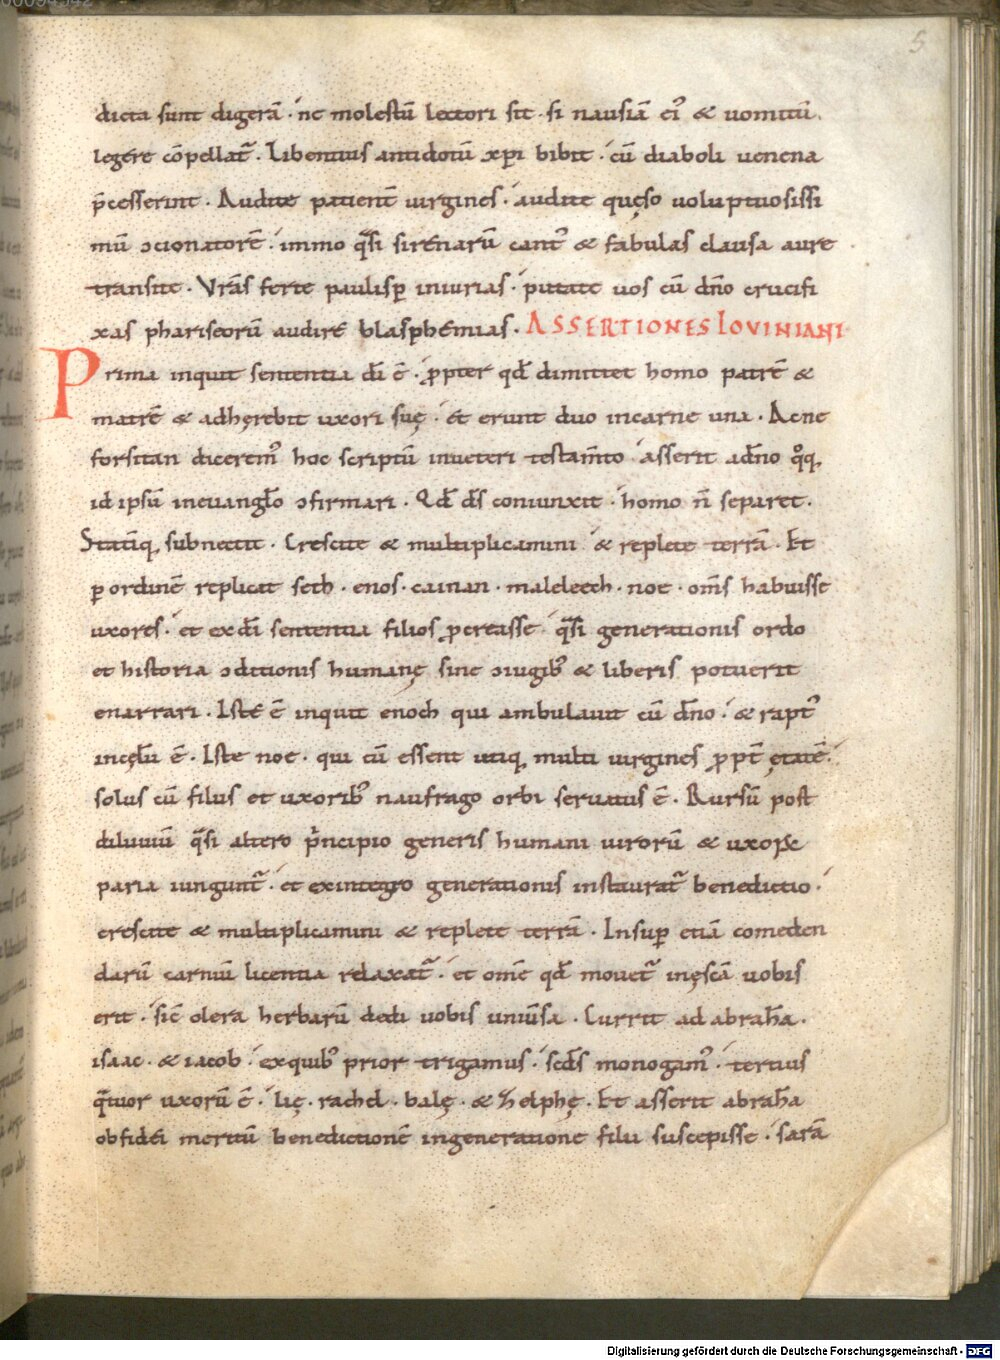 5
dicta sunt digerā · ne molestū lectori sit · si nausiā ei' & uomitū
legere cōpellat᷑ · Libentius antidotū xp̄i bibit · cū diaboli uenena
p̄cesserint · Audite patient̄ uirgines · audite quęso uoluptuosissi
mū ɔcionatorē · immo q̄si sirenarū cant' & fabulas clausa aure
transite · Vr̄as ferte paulisꝑ iniurias · putate uos cū dn̄o crucifi
xas phariseorū audire blasphemias · ASSERTIONES IOVINIANI
Prima inquit sententia dī ē · ꝓpter qd̄ dimittet homo patrē &
matrē & adhęrebit uxori suę · Et erunt duo incarne una · Acne
forsitan dicerem' hoc scriptū inueteri testam̄to asserit adn̄o qꝫq,
id ipsū ineuangl̄o ɔfirmari · Qd̄ ds̄ coniunxit · homo n̄ separet ·
Statīq, subnectit · Crescite & multiplicamini & replete terrā · Et
ꝑ ordinē replicat seth · enos · cainan · maleleech · noe · om̄s habuisse
uxores · et ex dī sententia filios ꝓcreasse q̄si generationis ordo
et historia ɔditionis humanę sine ɔiugib' & liberis potuerit
enarrari · Iste ē inquit enoch qui ambulauit cū dn̄o · & rapt'
incęlū ē · Iste noe · qui cū essent utiq, multi uirgines ꝓpt̄ ętatē ·
solus cū filiis et uxorib' naufrago orbi seruatus ē · Rursū post
diluuiū q̄si altero p̄ncipio generis humani uirorū & uxoꝝ
paria iungunt᷑ · et exintegro generationis instaurat᷑ benedictio ·
crescite & multiplicamini & replete terrā · Insuꝑ etiā comeden
darū carniū licentia relaxat᷑ · et omē qd̄ mouet᷑ inęscā uobis
erit · sic̄ olera herbarū dedi uobis uniūsa · Currit ad abrah̄a ·
isaac · & iacob · ex quib' prior trigamus · scd̄s monogam' · tertius
q̄tuor uxorū ē · lię · rachel · balę · & zelphę · Et asserit abrah̄a
obfidei meritū benedictionē ingeneratione filii suscepisse · sarā
Digitalisierung gefördert durch die Deutsche Forschungsgemeinschaft - DFG